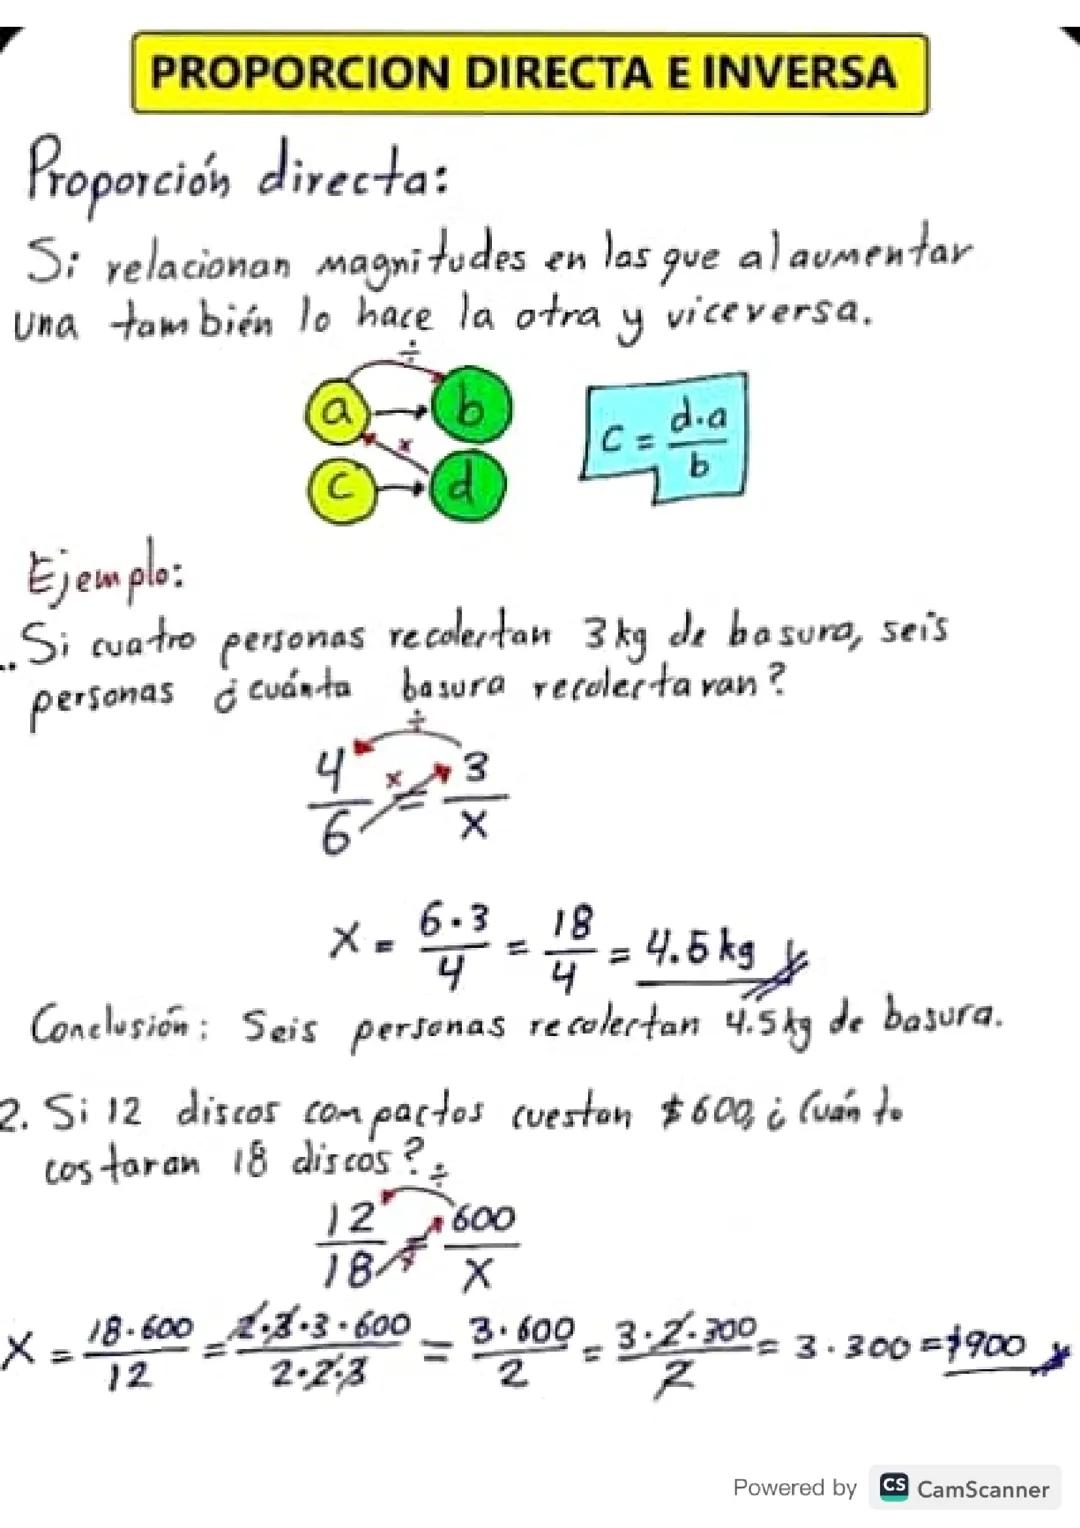 PROPORCION DIRECTA E INVERSA
Proporción directa:
Si relacionan magnitudes en las que al aumentar
una también lo hace la otra y viceversa.
÷
a b
x
c d
C = d·a / b
Ejemplo:
Si cuatro personas recolectan 3kg de basura, seis
personas ¿cuánta basura recolectavan?
÷
4/6 = 3/x
x
X = 6·3/4 = 18/4 = 4.5 kg
Conclusión: Seis personas recolectan 4.5kg de basura.
2. Si 12 discos compactos cuestan $600, ¿Cuánto
costaran 18 discos?
÷
12/18 = 600/X
X = 18·600/12 = 2·3·3·600/2·2·3 = 3·600/2 = 3·2·300/2 = 3·300 = $900
Powered by CS CamScanner